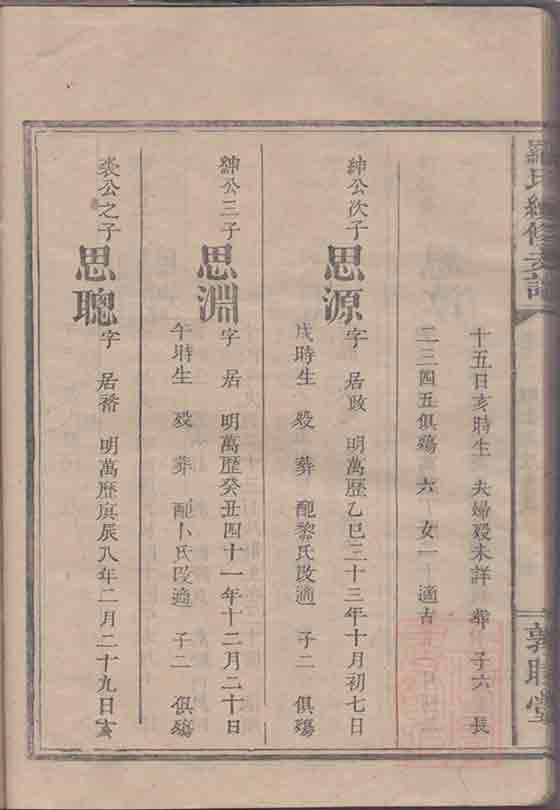 羅氏續修支譜
敦睦堂
十五日亥時生 夫婦歿未詳 葬 子六 長
二三四五俱殤 六 女一 適古
紳公次子
思源
字 居政 明萬歷乙巳三十三年十月初七日
戌時生 歿 葬 配黎氏改適 子二 俱殤
紳公三子
思淵
字 居 明萬歷癸丑四十一年十二月二十日
午時生 歿 葬 配卜氏改適 子二 俱殤
裘公之子
思聰
字 居 明萬歷庚辰八年二月二十九日亥